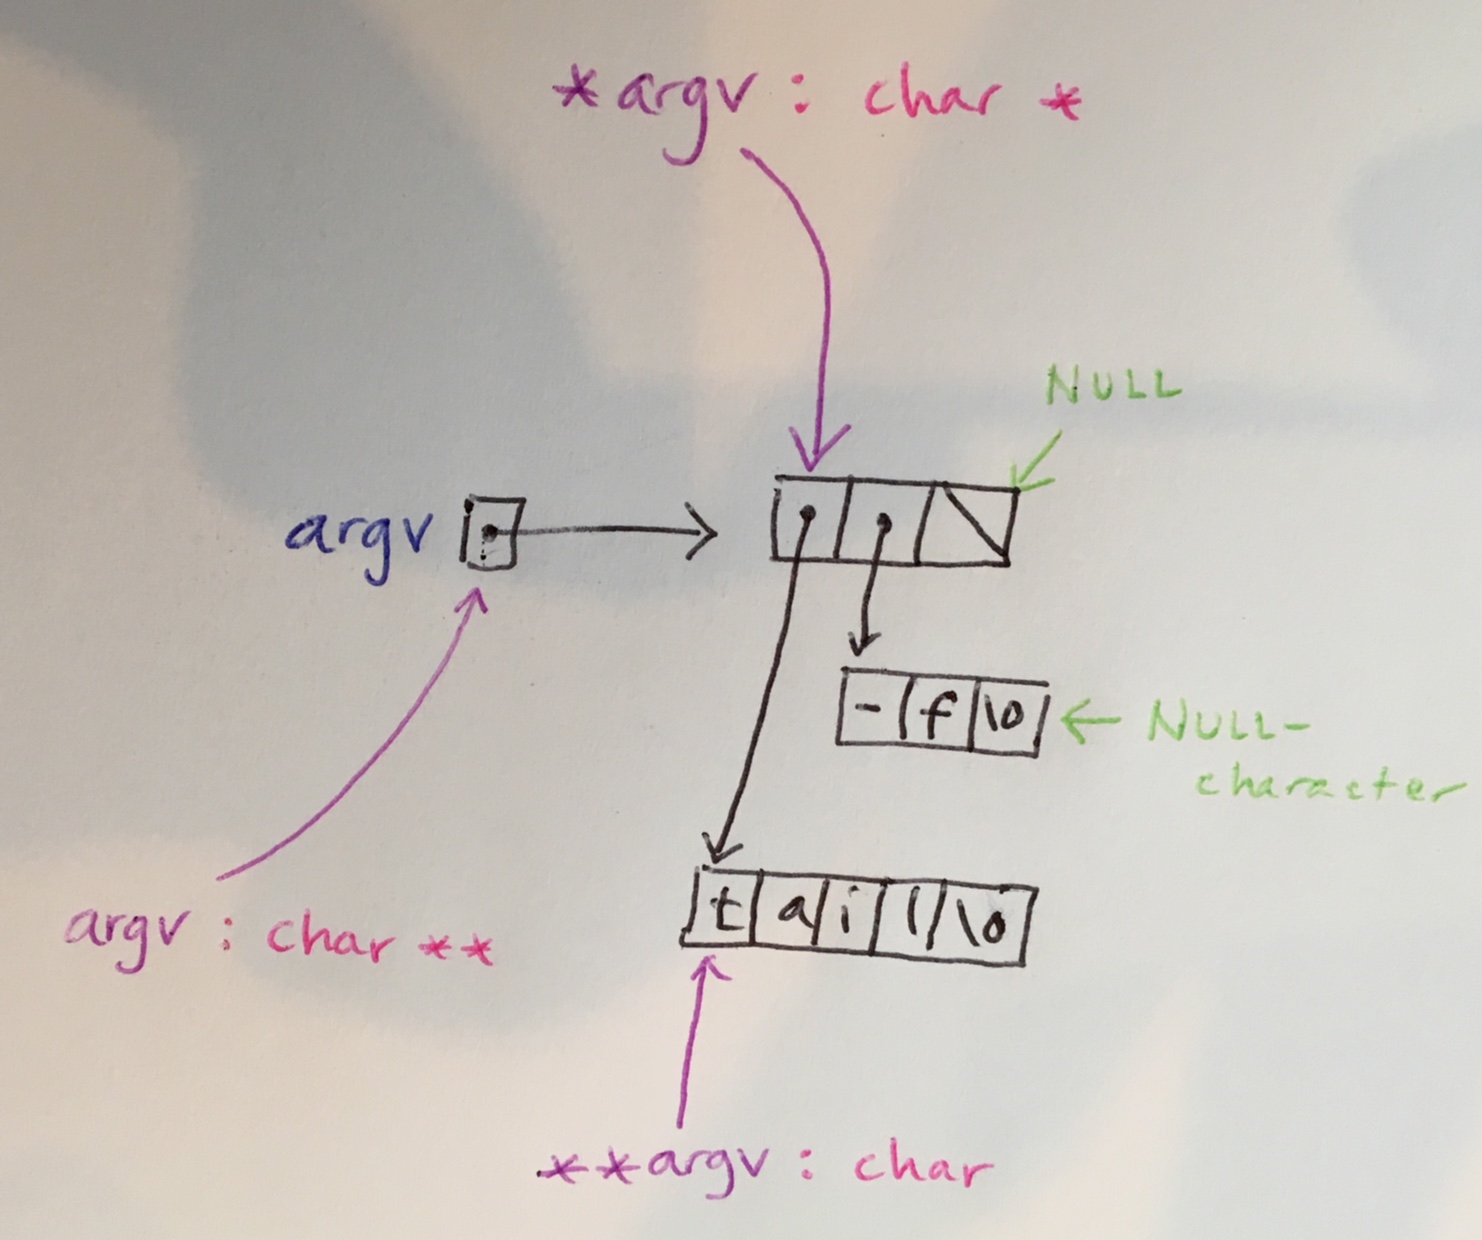 *argv : char *
NULL
argv
- f \0
NULL-
character
t a i l \0
argv : char **
**argv : char